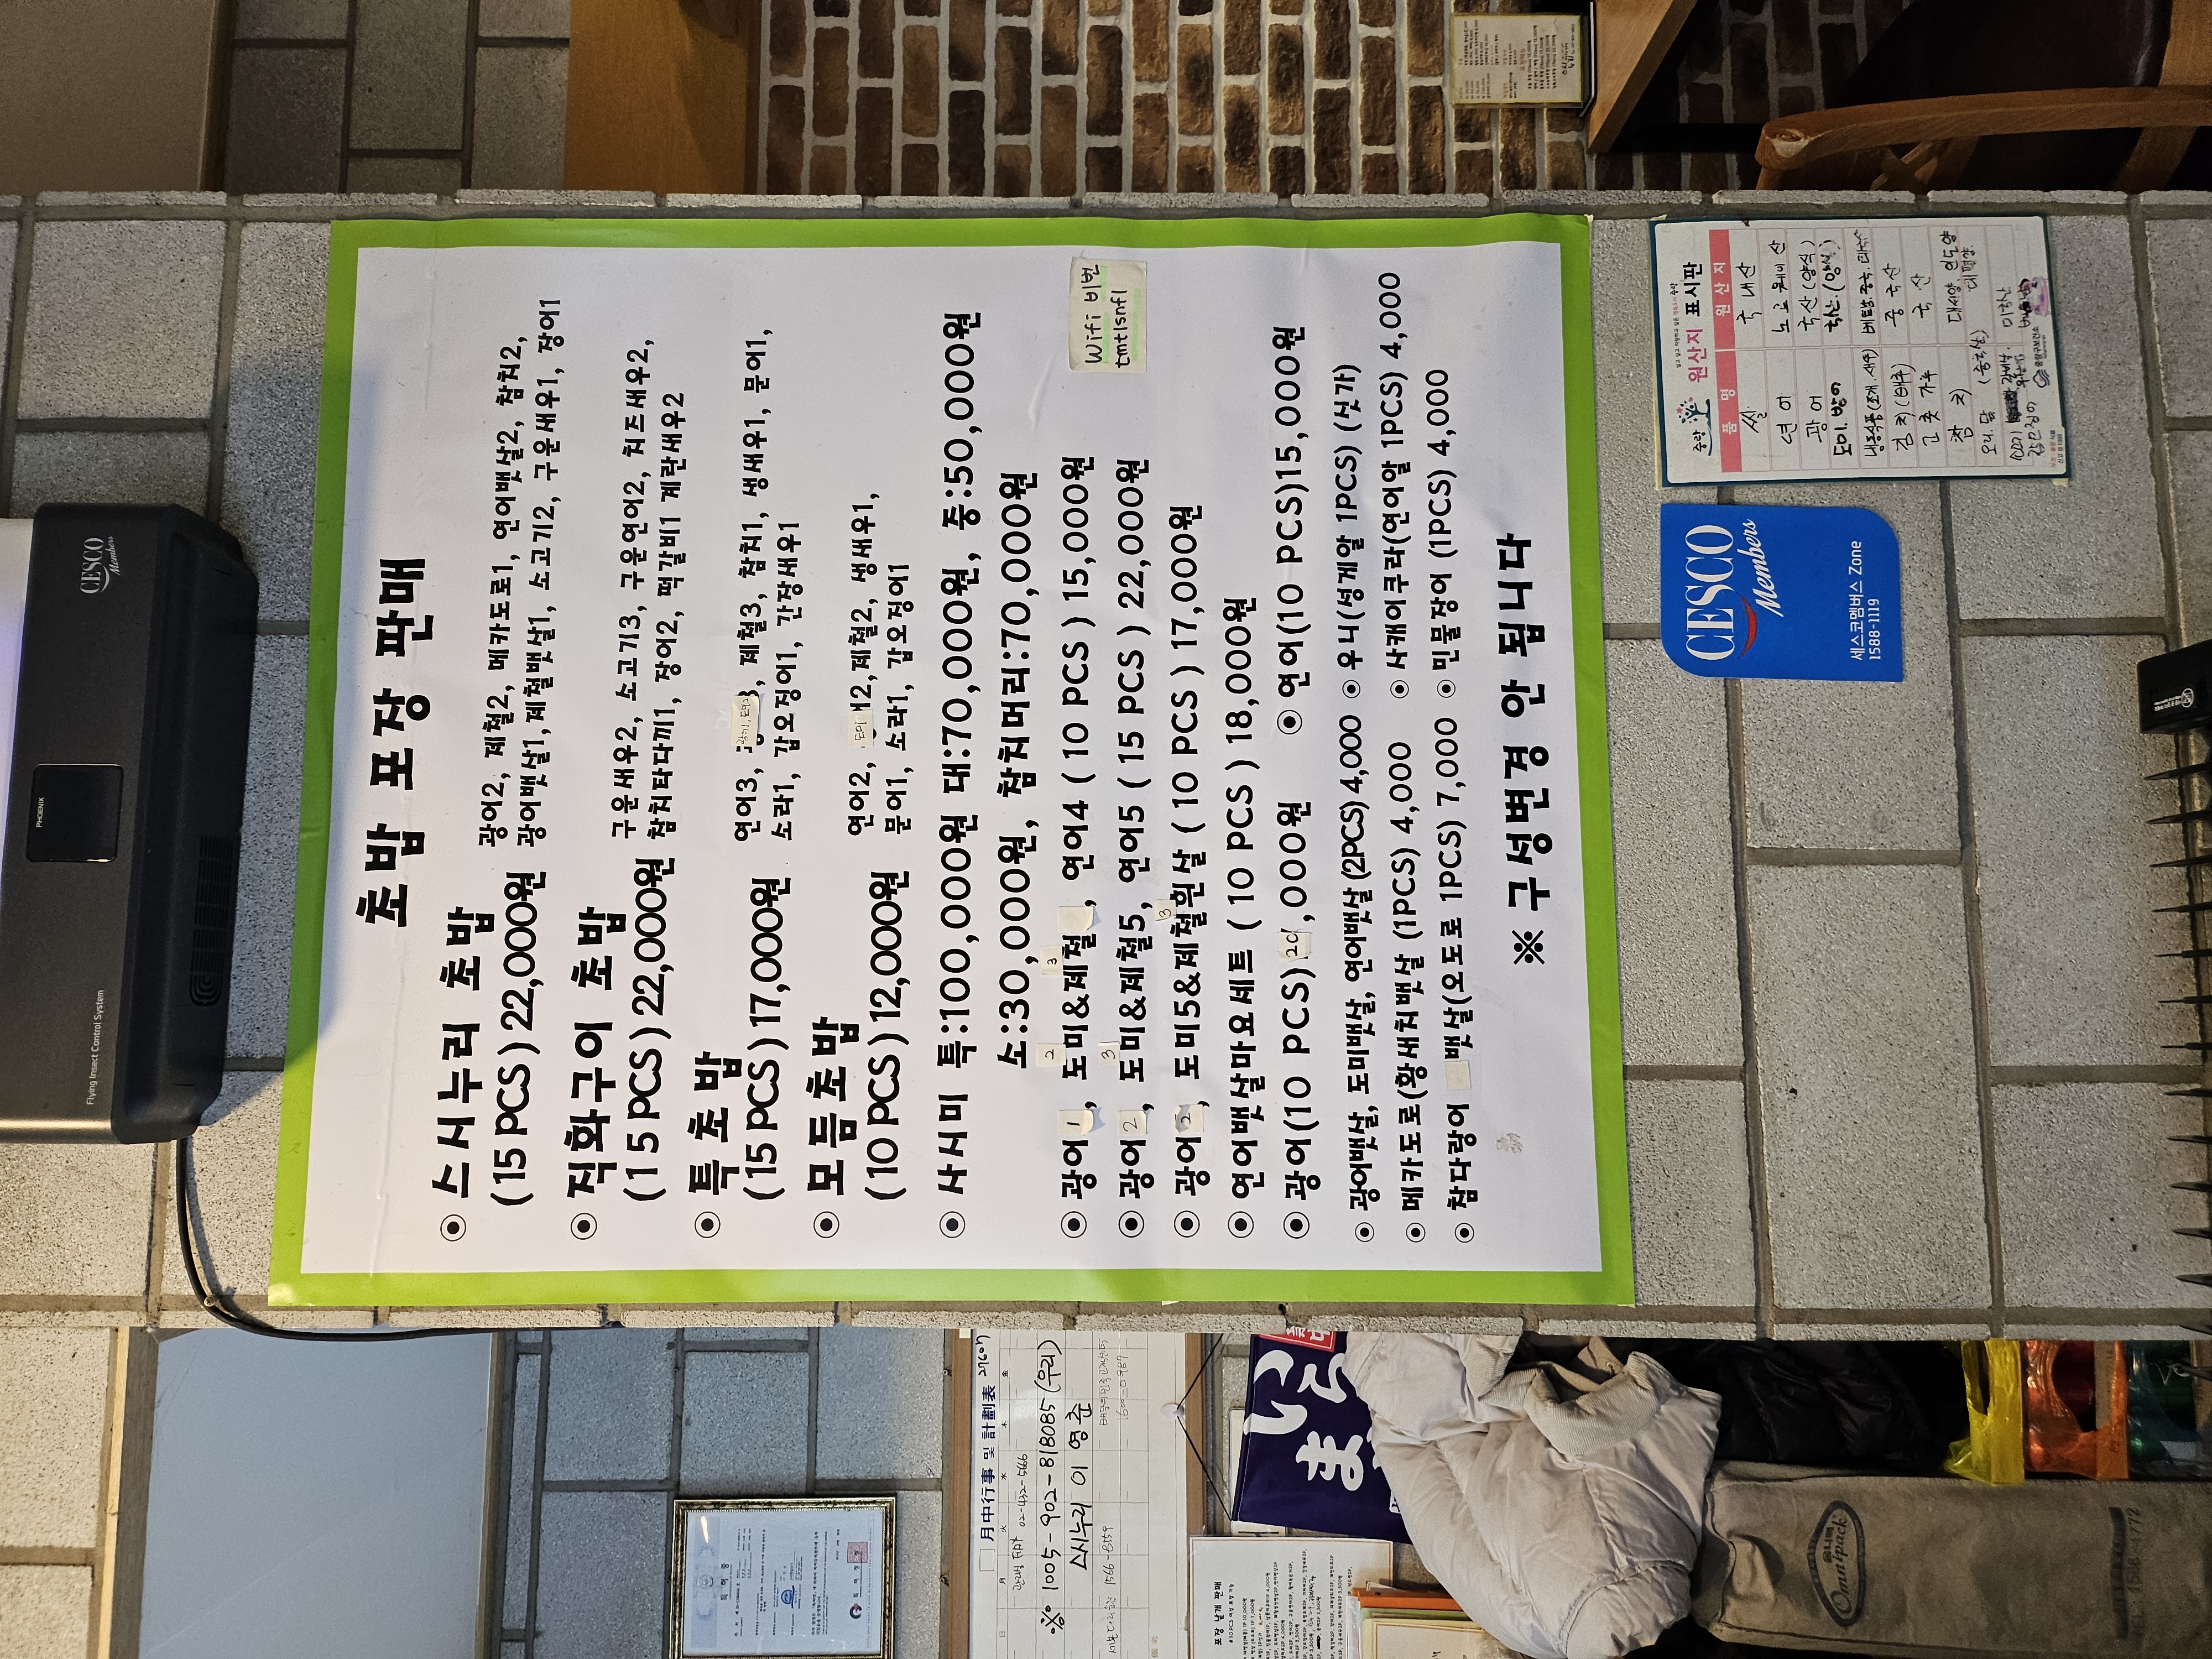 초밥 포장 판매
스시누리 초밥
(15 PCS) 22,000원
광어2, 제철2, 메카도로1, 연어뱃살2, 참치2,
광어뱃살1, 제철뱃살1, 소고기2, 구운새우1, 장어1
직화구이 초밥
(15 PCS) 22,000원
구운새우2, 소고기3, 구운연어2, 치즈새우2,
참치타다끼1, 장어2, 떡갈비1 계란새우2
특초밥
(15 PCS) 17,000원
연어3, 제철3, 참치1, 생새우1, 문어1,
소라1, 갑오징어1, 간장새우1
모듬초밥
(10 PCS) 12,000원
연어2, 도미 제철2, 생새우1,
문어1, 소라1, 갑오징어1
사시미 특:100,000원 대:70,000원, 중:50,000원
소:30,000원, 참치머리:70,000원
Wifi 비번
tmtlsnfl
광어1, 도미&제철, 연어4 ( 10 PCS ) 15,000원
2 3
광어2, 도미&제철5, 연어5 ( 15 PCS ) 22,000원
3
광어2, 도미5&제철흰살 ( 10 PCS ) 17,000원
3
연어뱃살마요세트 ( 10 PCS ) 18,000원
광어(10 PCS) 20,000원 연어(10 PCS)15,000원
광어뱃살, 도미뱃살, 연어뱃살 (2PCS) 4,000 우니(성게알 1PCS) (싯가)
메카도로(황새치뱃살 (1PCS) 4,000 사케이쿠라(연어알 1PCS) 4,000
참다랑어 뱃살(오도로 1PCS) 7,000 민물장어 (1PCS) 4,000
※ 구성변경 안 됩니다
CESCO
Members
PHOENIX
Flying Insect Control System
CESCO
Members
세스코멤버스 Zone
1588-1119
중랑 원산지 표시판
품 명 원 산 지
쌀 국내산
연어 노르웨이산
광어 국산 (양식)
도미. 방어 국산. (양식)
냉동식품 (조개 새우) 베트남. 중국.
김치 (배추) 중국산
고춧가루 국산
참치 대서양 인도양
태평양
오리. 닭 (중국산)
갑오징어
중랑구보건소
月中行事 및 計劃表
02-432-5666
※ 1005-902-818085 (우리)
스시누리 이영준
1566-8259
1600-0987
포장 낱개 판매
いら
ま
옴니팩
Omnipack
1588-4772